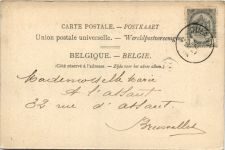 CARTE POSTALE. — POSTKAART
Union postale universelle. — Wereldpostvereeniging
BELGIQUE. — BELGIE.
(Côté réservé à l'adresse. — Zijde voor het adres alleen)
Mademoiselle Marie
A l'assaut
32 rue d'assaut
Bruxelles